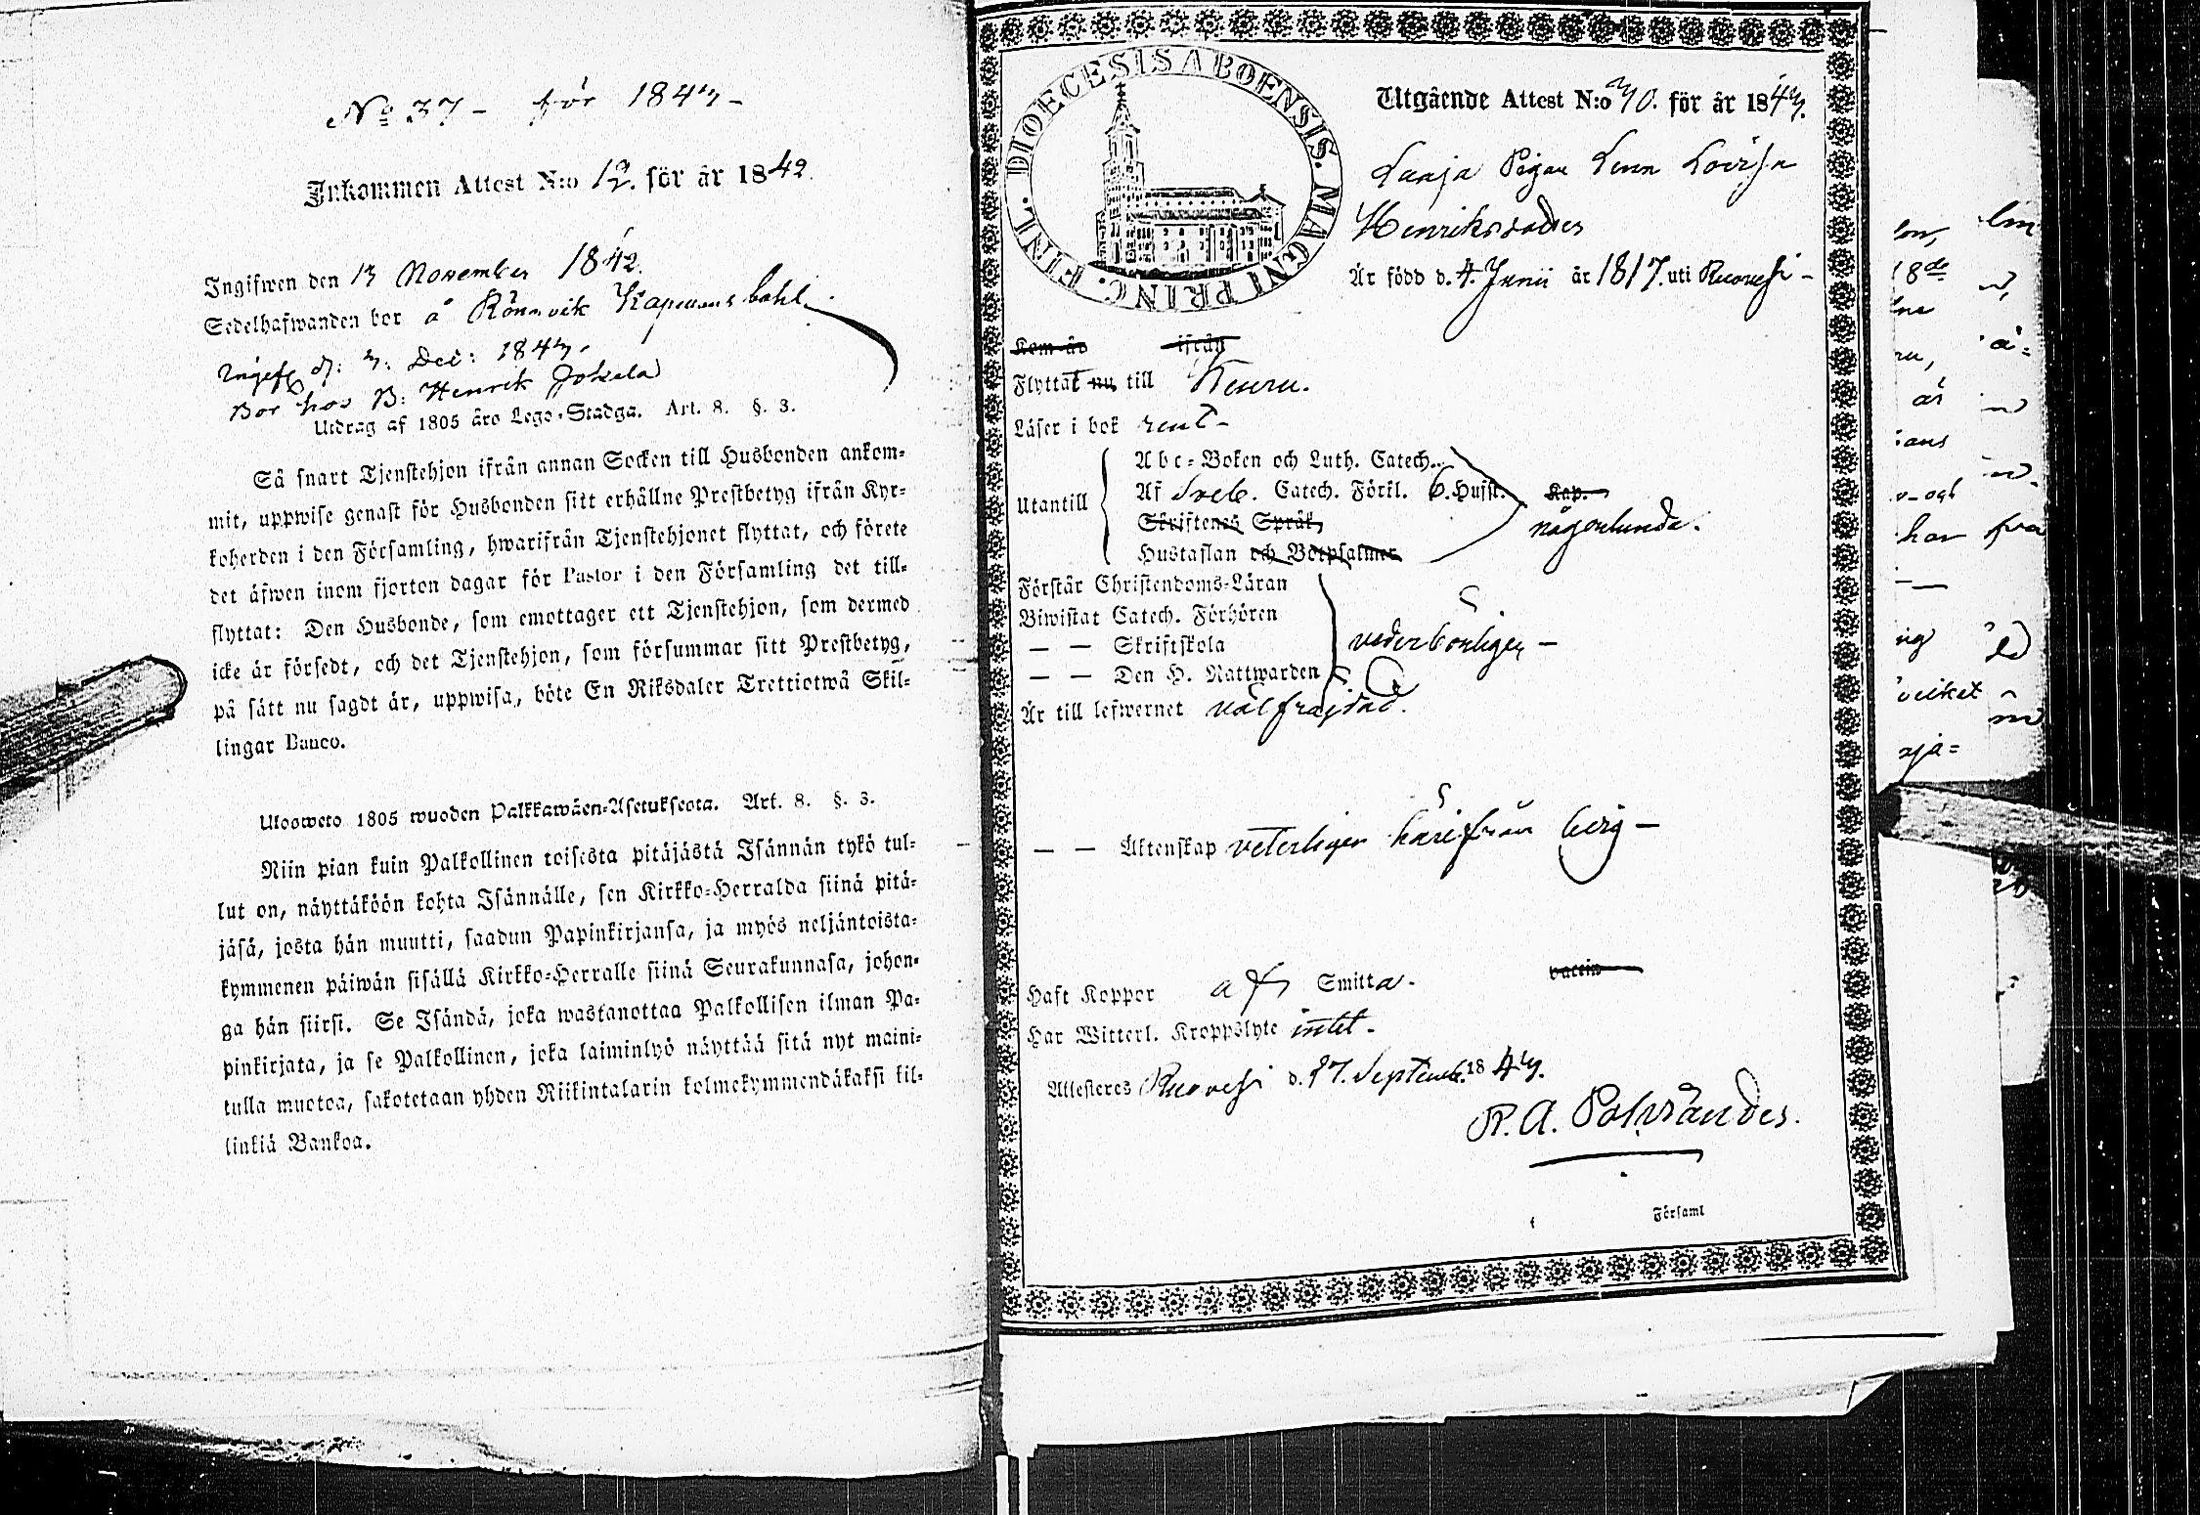 No 37 - för 1843 -
Inkommen Attest N:o 12. för år 1842.
Ingifwen den 13 November 1842.
Sedelhafwanden bor å Rönnvik Kapmans bohl
Ingefn d: 3: Dec: 1843.
Bor hos B: Henrik Jokela
Utdrag af 1805 års Lego-Stadga. Art. 8. §. 3.
Så snart Tjenstehjon ifrån annan Socken till Husbonden ankom-
mit, uppwise genast för Husbonden sitt erhållne Prestbetyg ifrån Kyr-
koherden i den Församling, hwarifrån Tjenstehjonet flyttat, och förete
det äfwen inom fjorton dagar för Pastor i den Församling det till-
flyttat: Den Husbonde, som emottager ett Tjenstehjon, som dermed
icke är försedt, och det Tjenstehjon, som försummar sitt Prestbetyg,
på sätt nu sagdt är, uppwisa, böte En Riksdaler Trettiotwå Skil-
lingar Banco.
Ulosweto 1805 wuoden Palkkawäen-Asetuksesta. Art. 8. §. 3.
Niin pian kuin Palkollinen toisesta pitäjästä Isännän tykö tul-
lut on, näyttäköön kohta Isännälle, sen Kirkko-Herralda siinä pitä-
jäsä, josta hän muutti, saadun Papinkirjansa, ja myös neljäntoista-
kymmenen päiwän sisällä Kirkko-Herralle siinä Seurakunnasa, johon-
ga hän siirsi. Se Isändä, joka wastanottaa Palkollisen ilman Pa-
pinkirjata, ja se Palkollinen, joka laiminlyö näyttää sitä nyt maini-
tulla muotoa, sakotetaan yhden Riikintalarin kolmekymmendäkaksi kil-
linkiä Bankoa.
DIOECESIS ABOENSIS. MAGNI PRINC. FINL.
Utgående Attest N:o 30. för år 1843.
Pigan Lovisa
Henriksdotter
Är född d. 4. Junii år 1817. uti Ruovesi -
Kom år ifrån
Flyttat nu till Keuru.
Läser i bok rent -
Utantill
Abc-Boken och Luth. Catech.
Af Sveb. Catech. Förkl. 6. Hufst. Kap.
Skriftenes Språk,
någorlunda.
Hustaflan och Botpsalmer
Förstår Christendoms-Läran
Biwistat Catech. Förhören
— — Skriftskola
vederbörligen —
— — Den H. Nattwarden
Är till lefwernet välfräjdad.
— — Äktenskap veterligen härifrån ledig —
Haft Koppor af Smitta. vaccin
Har Witterl. Kroppslyte intet.
Attesteres Ruovesi d. 27. Septemb. 1843.
Församl